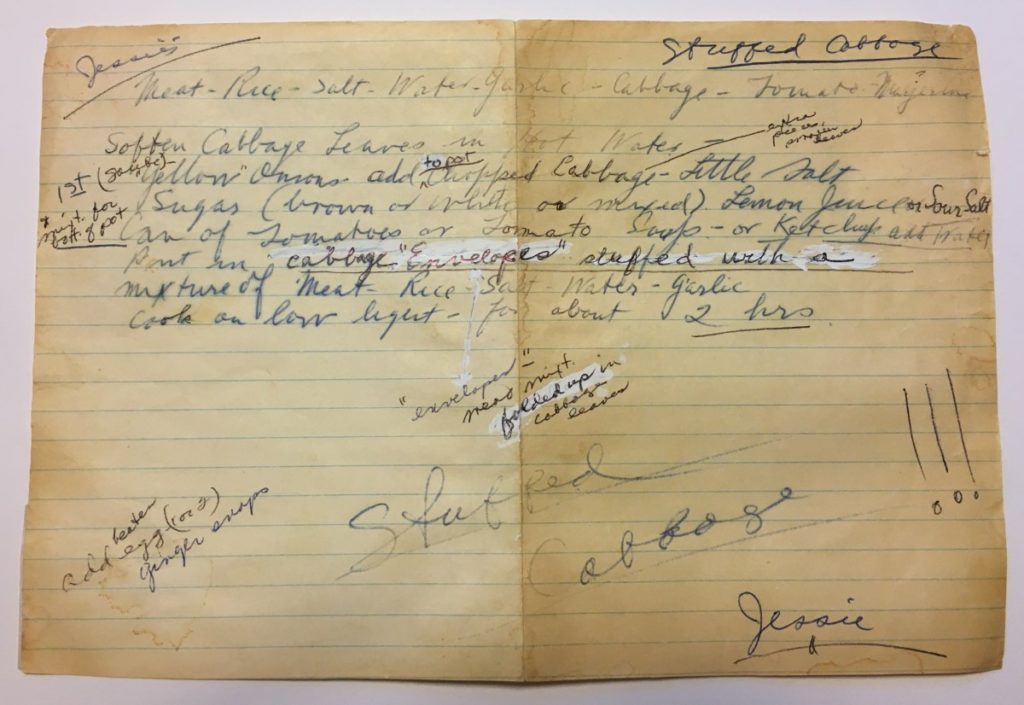 Jessie's
Stuffed Cabbage
Meat - Rice - Salt - Water - Garlic - Cabbage - Tomato
Soften Cabbage Leaves in Hot Water -
extra
pieces
leaves
1st (sauté) -
"Yellow" Onions add to pot Chopped Cabbage - Little Salt
Sugar (brown or white or mixed) Lemon Juice or Sour Salt
mixt. for
bott. of pot
Can of Tomatoes or Tomato Soup - or Ketchup and Water
Put in cabbage "Envelopes" stuffed with a
mixture of Meat - Rice - Salt - Water - Garlic
Cook on low - for about 2 hrs.
"envelopes" =
meat mixt.
folded up in
cabbage
leaves
!!!
Stuffed
Cabbage
add beaten
egg (1 or 2)
ginger snaps
Jessie